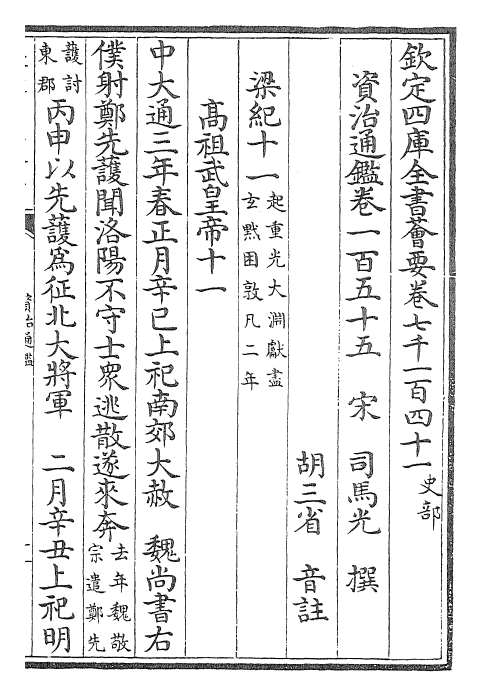 欽定四庫全書薈要卷七千一百四十一 史部
資治通鑑卷一百五十五 宋 司馬光 撰
胡三省 音註
梁紀十一 起重光大淵獻盡玄黓困敦凡二年
高祖武皇帝十一
中大通三年春正月辛巳上祀南郊大赦 魏尚書右
僕射鄭先護聞洛陽不守士衆逃散遂來奔 去年魏敬宗遣鄭先
護討東郡 丙申以先護爲征北大將軍 二月辛丑上祀明
資治通鑑